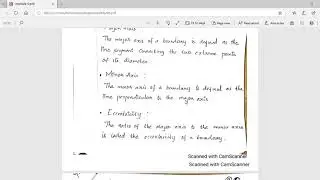 Major Axis
The major axis of a boundary is defined as the
line segment connecting the two extreme points
of its diameter.
• Minor Axis :
The minor axis of a boundary is defined as the
line perpendicular to the major axis
• Eccentricity :
The ratio of the major axis to the minor axis
is called the eccentricity of a boundary.
Scanned with CamScanner
Scanned with CamScanner